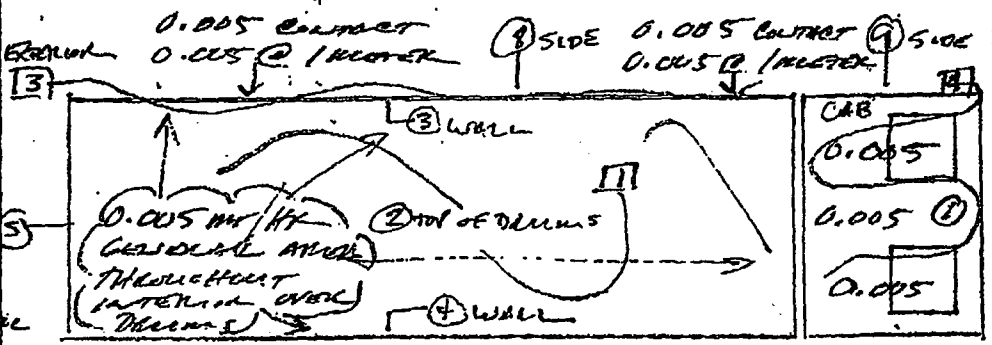 0.005 CONTACT
0.005 @ 1 METER
8 SIDE
0.005 CONTACT
0.005 @ 1 METER
9 SIDE
EXTERIOR
3
4
3 WALL
CAB
0.005
1
0.005 1
0.005
5
0.005 mr/HR
GENERAL AREA
THROUGHOUT
INTERIOR OVER
DRUMS
2 TOP OF DRUMS
4 WALL